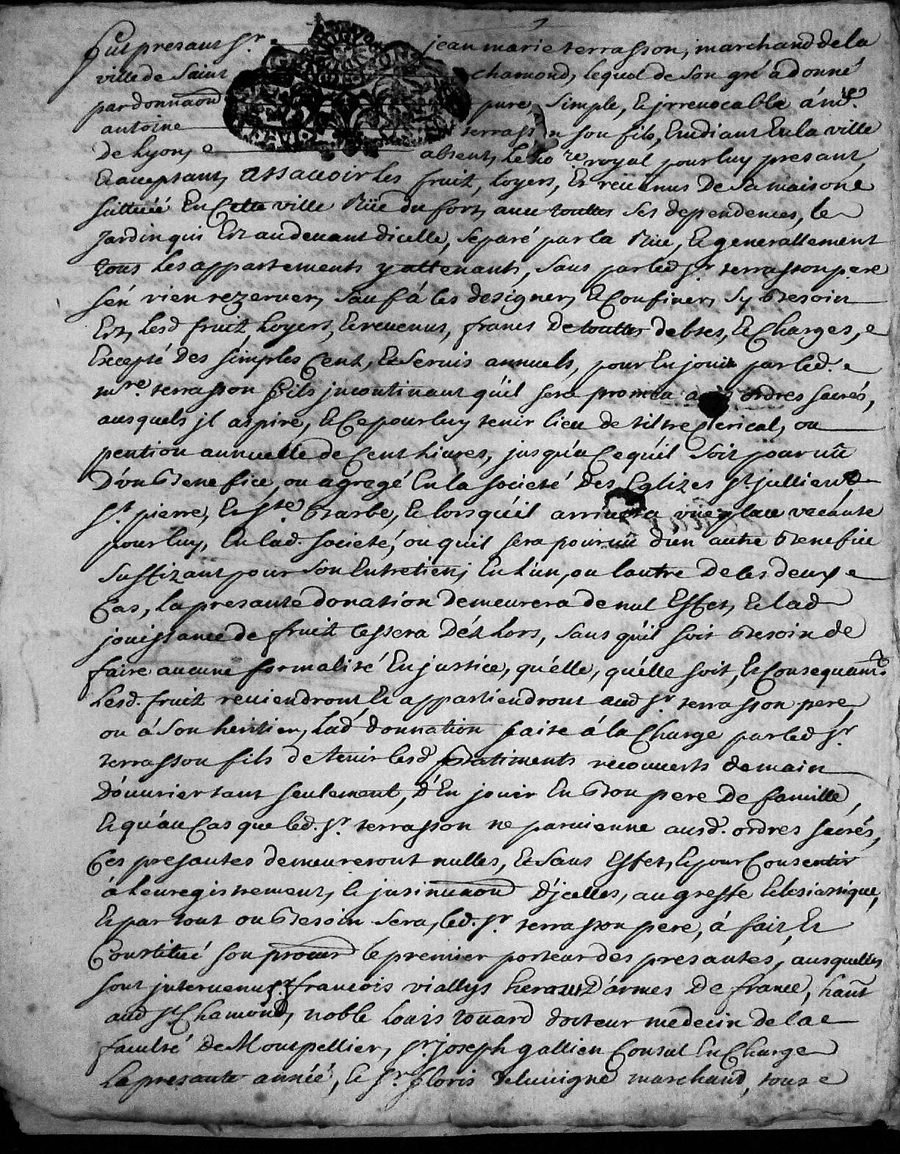 fut presant Sr. jean marie terrasson, marchand de la
ville de Saint chamond, lequel de son gré a donné
par donnaon pure, simple, et jrrevocable à mre.
antoine terrasson son fils, Etudiant En la ville
de Lyon, absent, le nore. royal pour luy presant,
Et aceptant, assavoir les fruit, loyers, Et revenus de sa maison
scittuée En Cette ville Rüe du fort, avec touttes ses dependences, le
Jardin qui Est au devant dicelle, separé par la Rüe, Et generallement
tous les appartements y attenants, sans par led. sr. terrasson pere
s'én rien rezerver, sauf à les designer, Et Confiner, sy besoin
Est, lesd. fruit, loyers, Et revenus, francs de touttes debtes, Et Charges,
Excepté des simples Cent, Et servis annuels, pour En jouir par led.
mre. terrasson fils jncontinant qu'il sera promeu aux ordres sacrés,
ausquels jl aspire, Et Ce pour luy tenir lieu de tiltre Clerical, ou
pention annuelle de Cent livres, jusqu'a Ce qu'il soit pourvû
D'un benefice, ou agregé En la societé des Eglizes st. jullien
st. pierre, Et ste. barbe, Et lorsqu'il arrivera une place vacante
pour luy, En lad. societé, ou quil sera pourvû d'un autre benefice
suffizant pour son Entretien, En l'un, ou l'autre de Ces deux
Cas, la presante donation demeurera de nul Effet, Et lad.
jouissance de fruit Cessera Dés hors, sans qu'il soit besoin de
faire aucune formalité En justice, qu'élle, qu'élle soit, Et Consequamt.
lesd. fruit reviendront Et appartiendront aud. sr. terrasson pere,
ou à son heritier, lad. donnation faite à la Charge par led. sr.
terrasson fils de tenir lesd. batiments recouverts de main
D'ouvrier tant seulement, d'En jouir En bon pere de famille,
Et qu'au Cas que led. sr. terrasson ne parvienne ausd. ordres sacrés,
Ces presantes demeureront nulles, Et sans Effet, Et pour Consentir
à l'enregistrement, Et jnsinuaon D'jcelles, au greffe Eclesiastique,
Et par tout ou besoin sera, led. sr. terrasson pere, à fait, Et
Constitué son procur le premier porteur des presantes, ausquelles
sont jntervenus sr. francois viallys heraud D'armes de france, hant
aud. st. Chamond, noble Louis touard docteur medecin de la
faculté de Montpellier, sr. joseph gallien Consul En Charge
la presante année, Et sr. floris delavigne marchand, tous